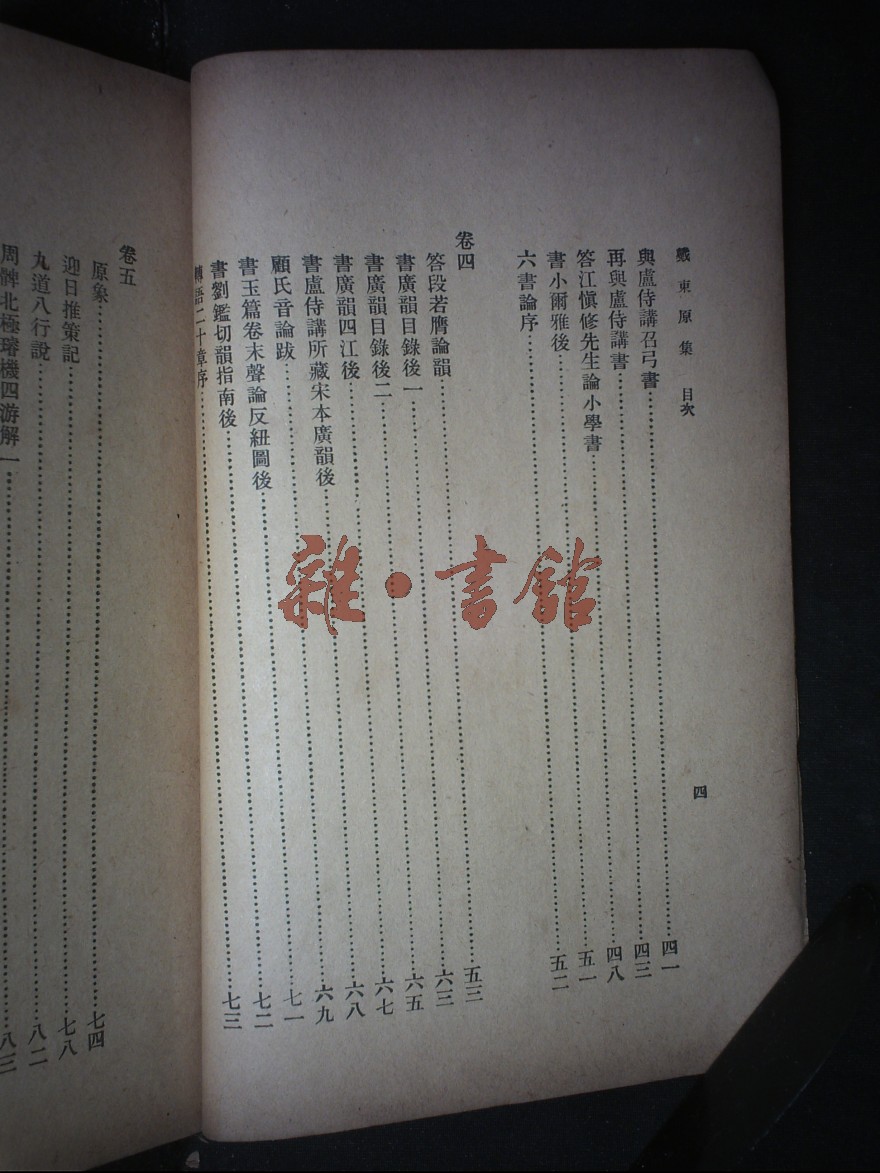 戴東原集 目次 四
與盧侍講召弓書……四一
再與盧侍講書……四三
答江慎修先生論小學書……四八
書小爾雅後……五一
六書論序……五二
卷四
答段若膺論韻……五三
書廣韻目錄後一……六三
書廣韻目錄後二……六五
書廣韻四江後……六七
書盧侍講所藏宋本廣韻後……六八
顧氏音論跋……六九
書玉篇卷末聲論反紐圖後……七一
書劉鑑切韻指南後……七二
轉語二十章序……七三
卷五
原象……七四
迎日推策記……七八
九道八行說……八二
周髀北極璿機四游解一……八三
雜·書館